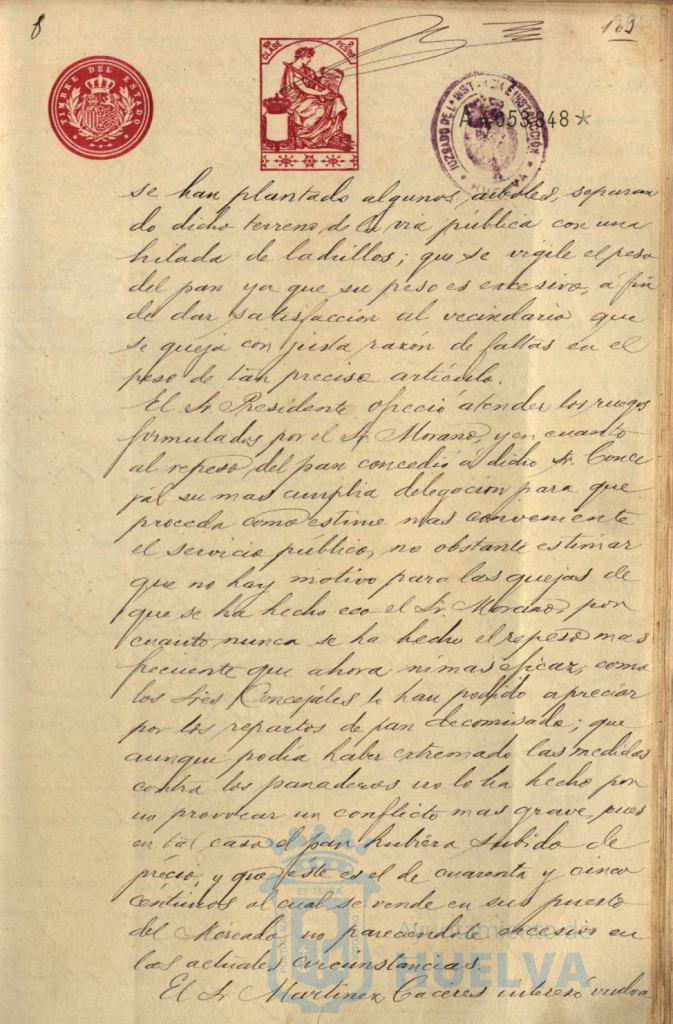 8
189
TIMBRE DEL ESTADO
CLASE
PESETAS
JUZGADO DE 1ª INSTANCIA E INSTRUCCIÓN
HUELVA
A 4.053.848 *
se han plantado algunos arboles, separan
do dicho terreno de la via pública con una
hilada de ladrillos; que se vigile el peso
del pan ya que su peso es excesivo, á fin
de dar satisfacción al vecindario que
se queja con justa razón de faltas en el
peso de tan preciso artículo.
El Sr Presidente ofreció atender los ruegos
formulados por el Sr. Morano, y en cuanto
al repeso del pan concedió á dicho Sr. Conce
jal su mas amplia delegación para que
proceda como estime mas conveniente
el servicio público, no obstante estimar
que no hay motivo para las quejas de
que se ha hecho eco el Sr. Morano, por
cuanto nunca se ha hecho el repeso mas
frecuente que ahora ni mas eficaz, como
los Sres Concejales lo han podido apreciar
por los repartos de pan decomisado; que
aunque podia haber extremado las medidas
contra los panaderos no lo ha hecho por
no provocar un conflicto mas grave, pues
en tal caso el pan hubiera subido de
precio, y que éste es el de cuarenta y cinco
céntimos al cual se vende en su puesto
del Mercado no pareciendole excesivo en
las actuales circunstancias.
El Sr Martinez Caceres interesó vuelva
Ayuntamiento de
HUELVA